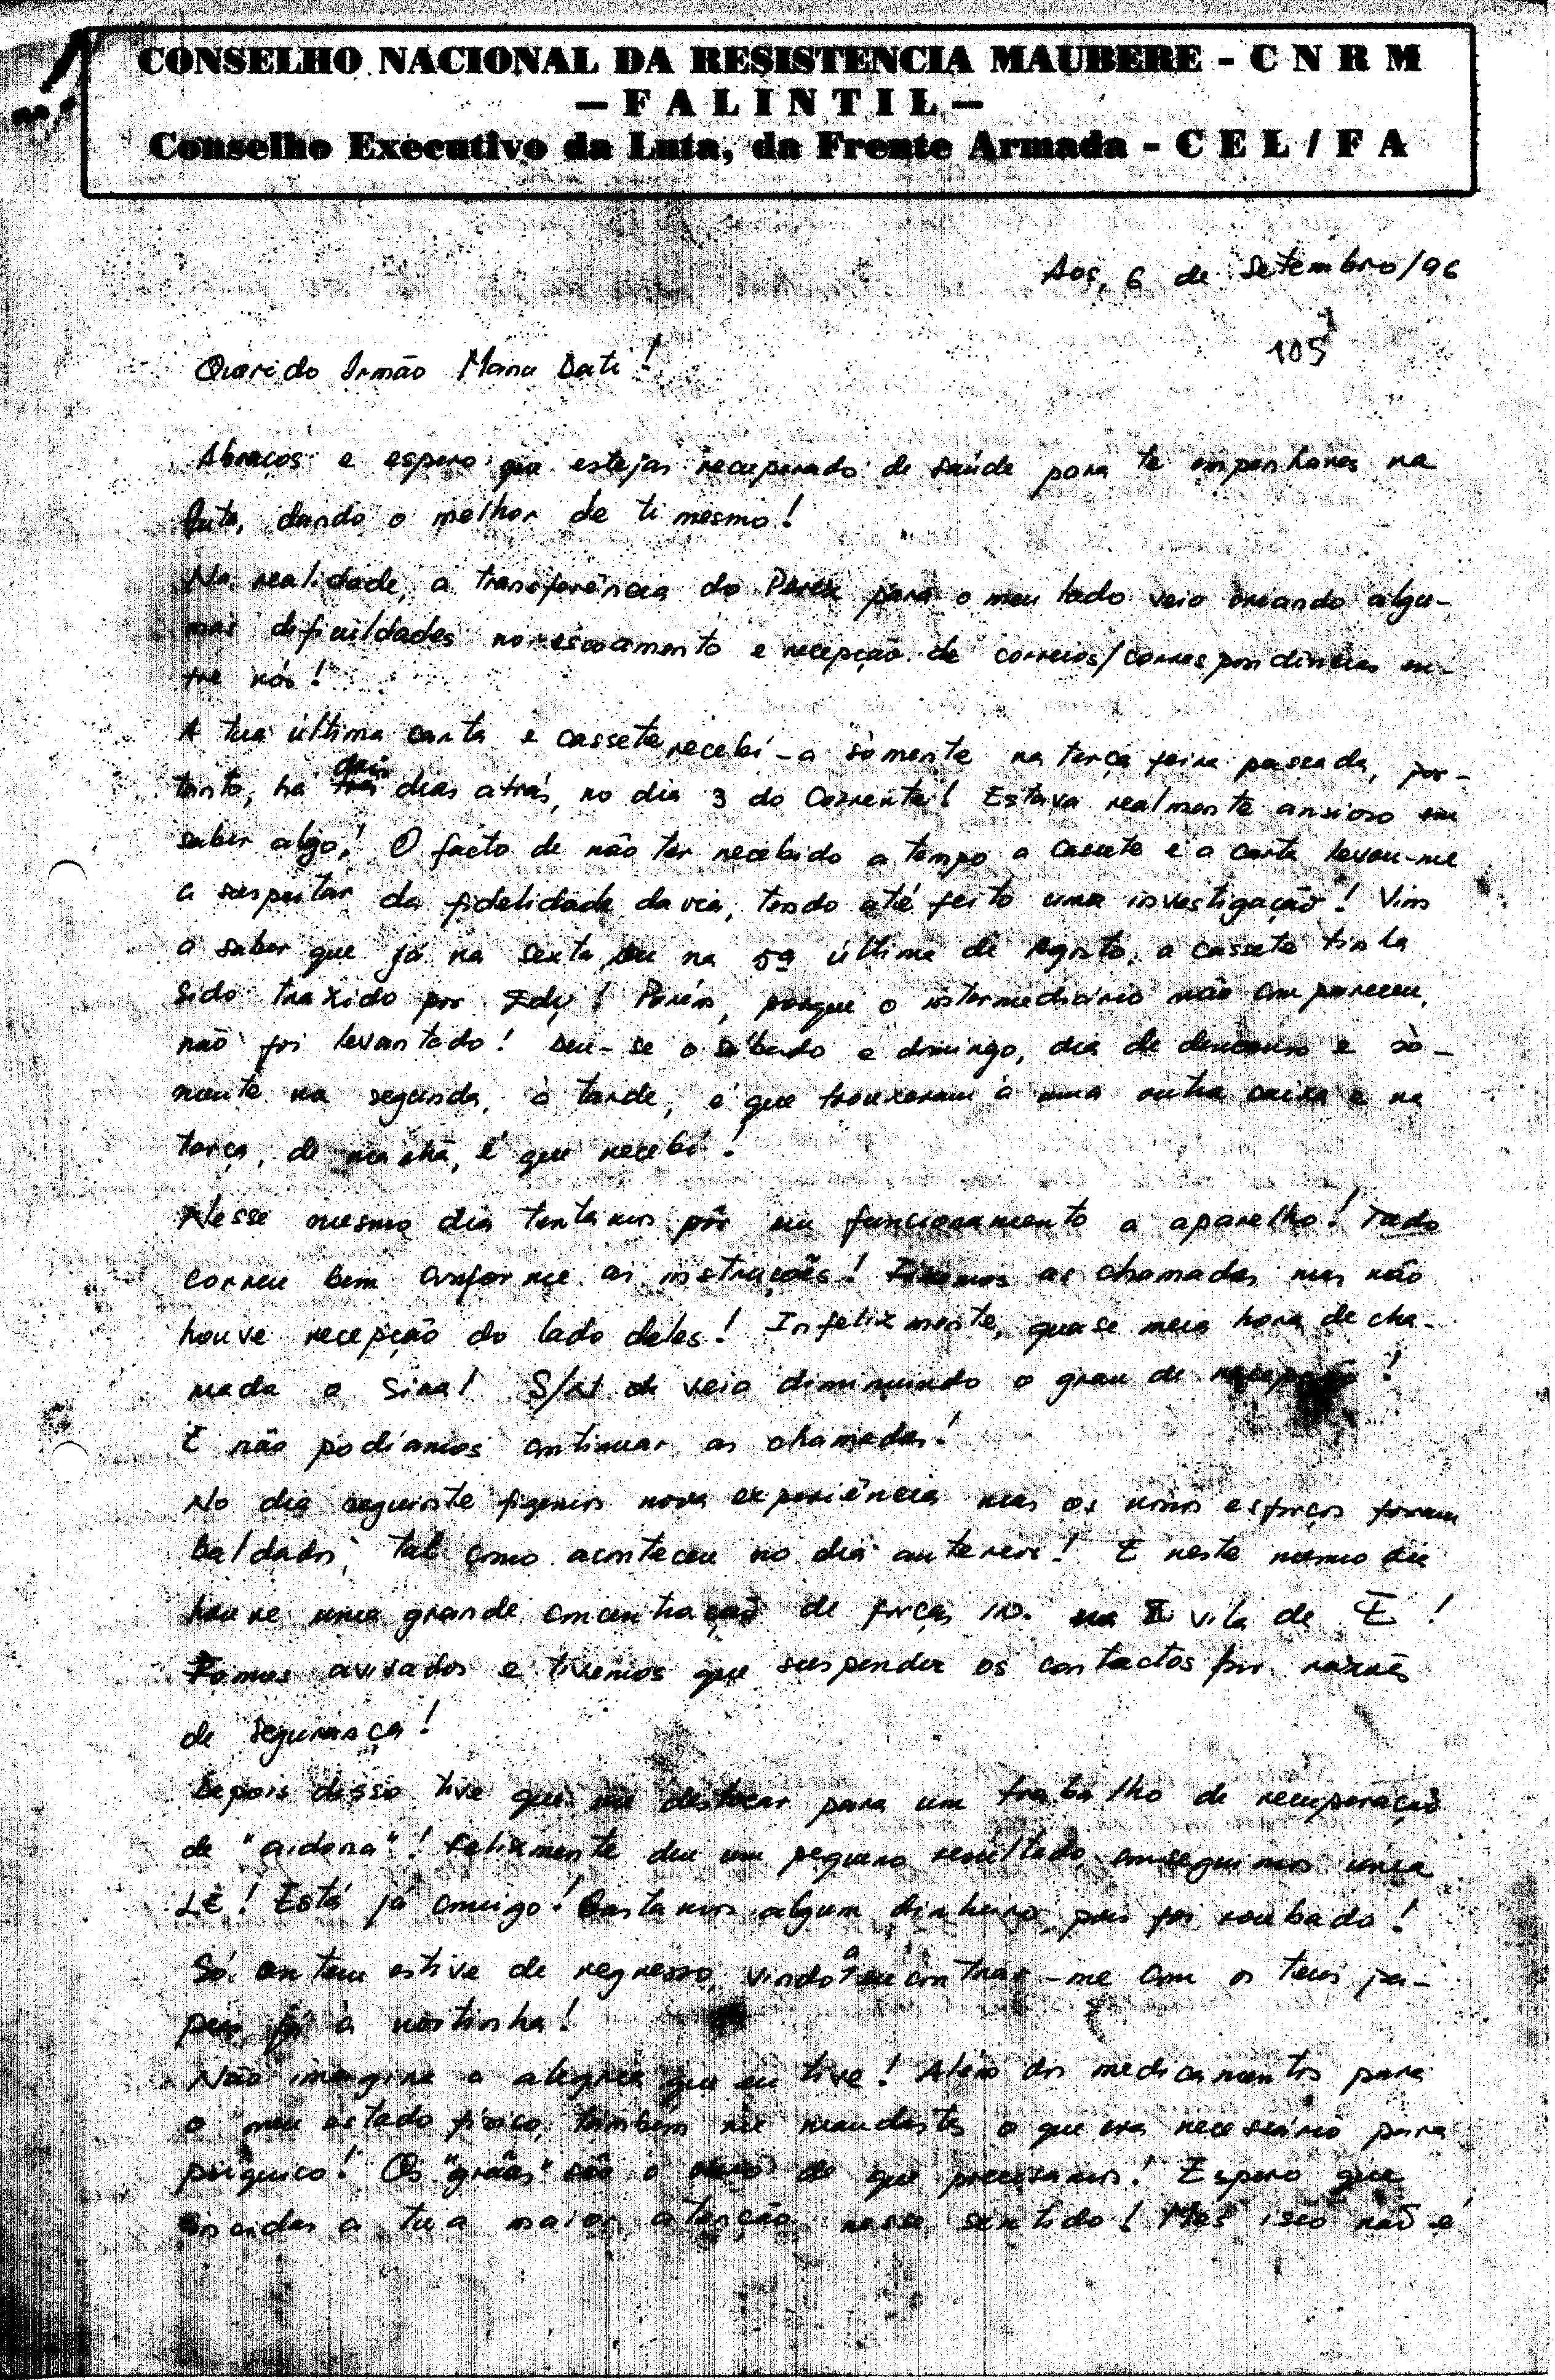 CONSELHO NACIONAL DA RESISTENCIA MAUBERE - C N R M
— F A L I N T I L —
Conselho Executivo da Luta, da Frente Armada - C E L / F A
Aos, 6 de Setembro/96
105
Querido Irmão Manu Bati!
Abraços e espero que estejas recuperado de saúde para te empenhares na
luta, dando o melhor de ti mesmo!
Na realidade, a transferência do para o meu lado veio criando algu-
mas dificuldades no escoamento e recepção de correios/correspondências en-
tre nós!
A tua última carta e cassete recebi-a sòmente na terça feira passada, por-
tanto, há dias atrás, no dia 3 do Corrente! Estava realmente ansioso em
saber algo! O facto de não ter recebido a tempo a cassete e a carta levou-me
a suspeitar da fidelidade da via, tendo até feito uma investigação! Vim
a saber que já na sexta, ou na 5ª última de Agosto, a cassete tinha
sido trazido por Edy! Porém, porque o intermediário não compareceu,
não foi levantado! Deu-se o sábado e domingo, dia de descanso e sò-
mente na segunda, à tarde, é que trouxeram à uma outra caixa e na
terça, de manhã, é que recebi!
Nesse mesmo dia tentamos pôr em funcionamento a aparelho! Tudo
correu bem conforme as instruções! Fizemos as chamadas mas não
houve recepção do lado deles! Infelizmente, quase meia hora de cha-
mada o sinal S/N veio diminuindo o grau de recepção!
E não podíamos continuar as chamadas!
No dia seguinte fizemos nova experiência mas os novos esforços foram
baldados, tal como aconteceu no dia anterior! E neste mesmo dia
houve uma grande concentração de forças in. na vila de E!
Fomos avisados e tivemos que suspender os contactos por razões
de segurança!
Depois disso tive que me deslocar para um trabalho de recuperação
de "aidona"! Felizmente deu um pequeno resultado, conseguimos uma
LE! Está já comigo! Gastamos algum dinheiro, pois foi roubado!
Só ontem estive de regresso, vindo a encontrar-me com os teus pa-
peis já à noitinha!
Não imagina a alegria que eu tive! Além dos medicamentos para
o meu estado físico, também me mandastes o que era necessário para
psíquico! Os "grãos" são o de que precisamos! Espero que
incidas a tua maior atenção nesse sentido! Mas isso não é